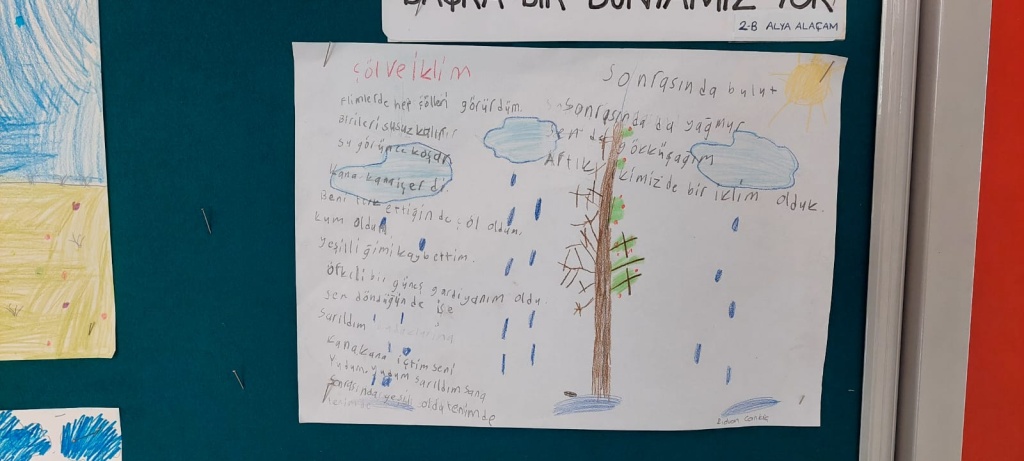 BAŞKA BİR DÜNYAMIZ YOK
2-B ALYA ALAÇAM
Çöl ve iklim
Filmlerde hep çölleri görürdüm.
Birileri susuz kalır
su görünce koşar
kana kana içerdi.
Beni terk ettiğinde çöl oldum,
kum oldum
yeşilliğimi kaybettim.
öfkeli bir güneş gardiyanım oldu.
sen döndüğünde ise
sarıldım
kana kana içtim seni
Yudum yudum sarıldım sana
sonrasında yeşil oldu tenimde
Sonrasında bulut
Sonrasında da yağmur
Sen de gökkuşağım
Artık ikimiz'de bir iklim olduk.